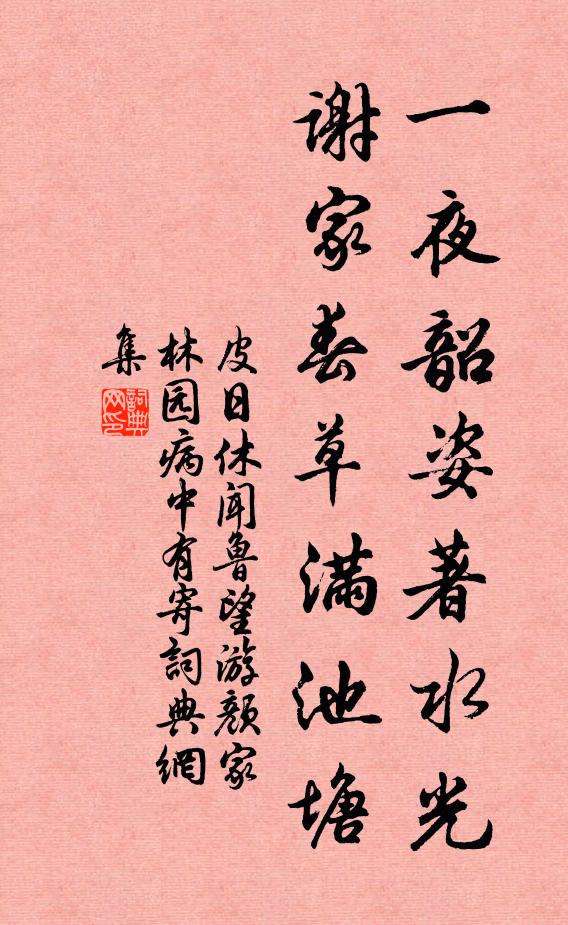 一夜韶姿著水光
謝家春草满池塘
皮日休闻鲁望游颜家
林园病中有寄詞典網
集
詞典
网印